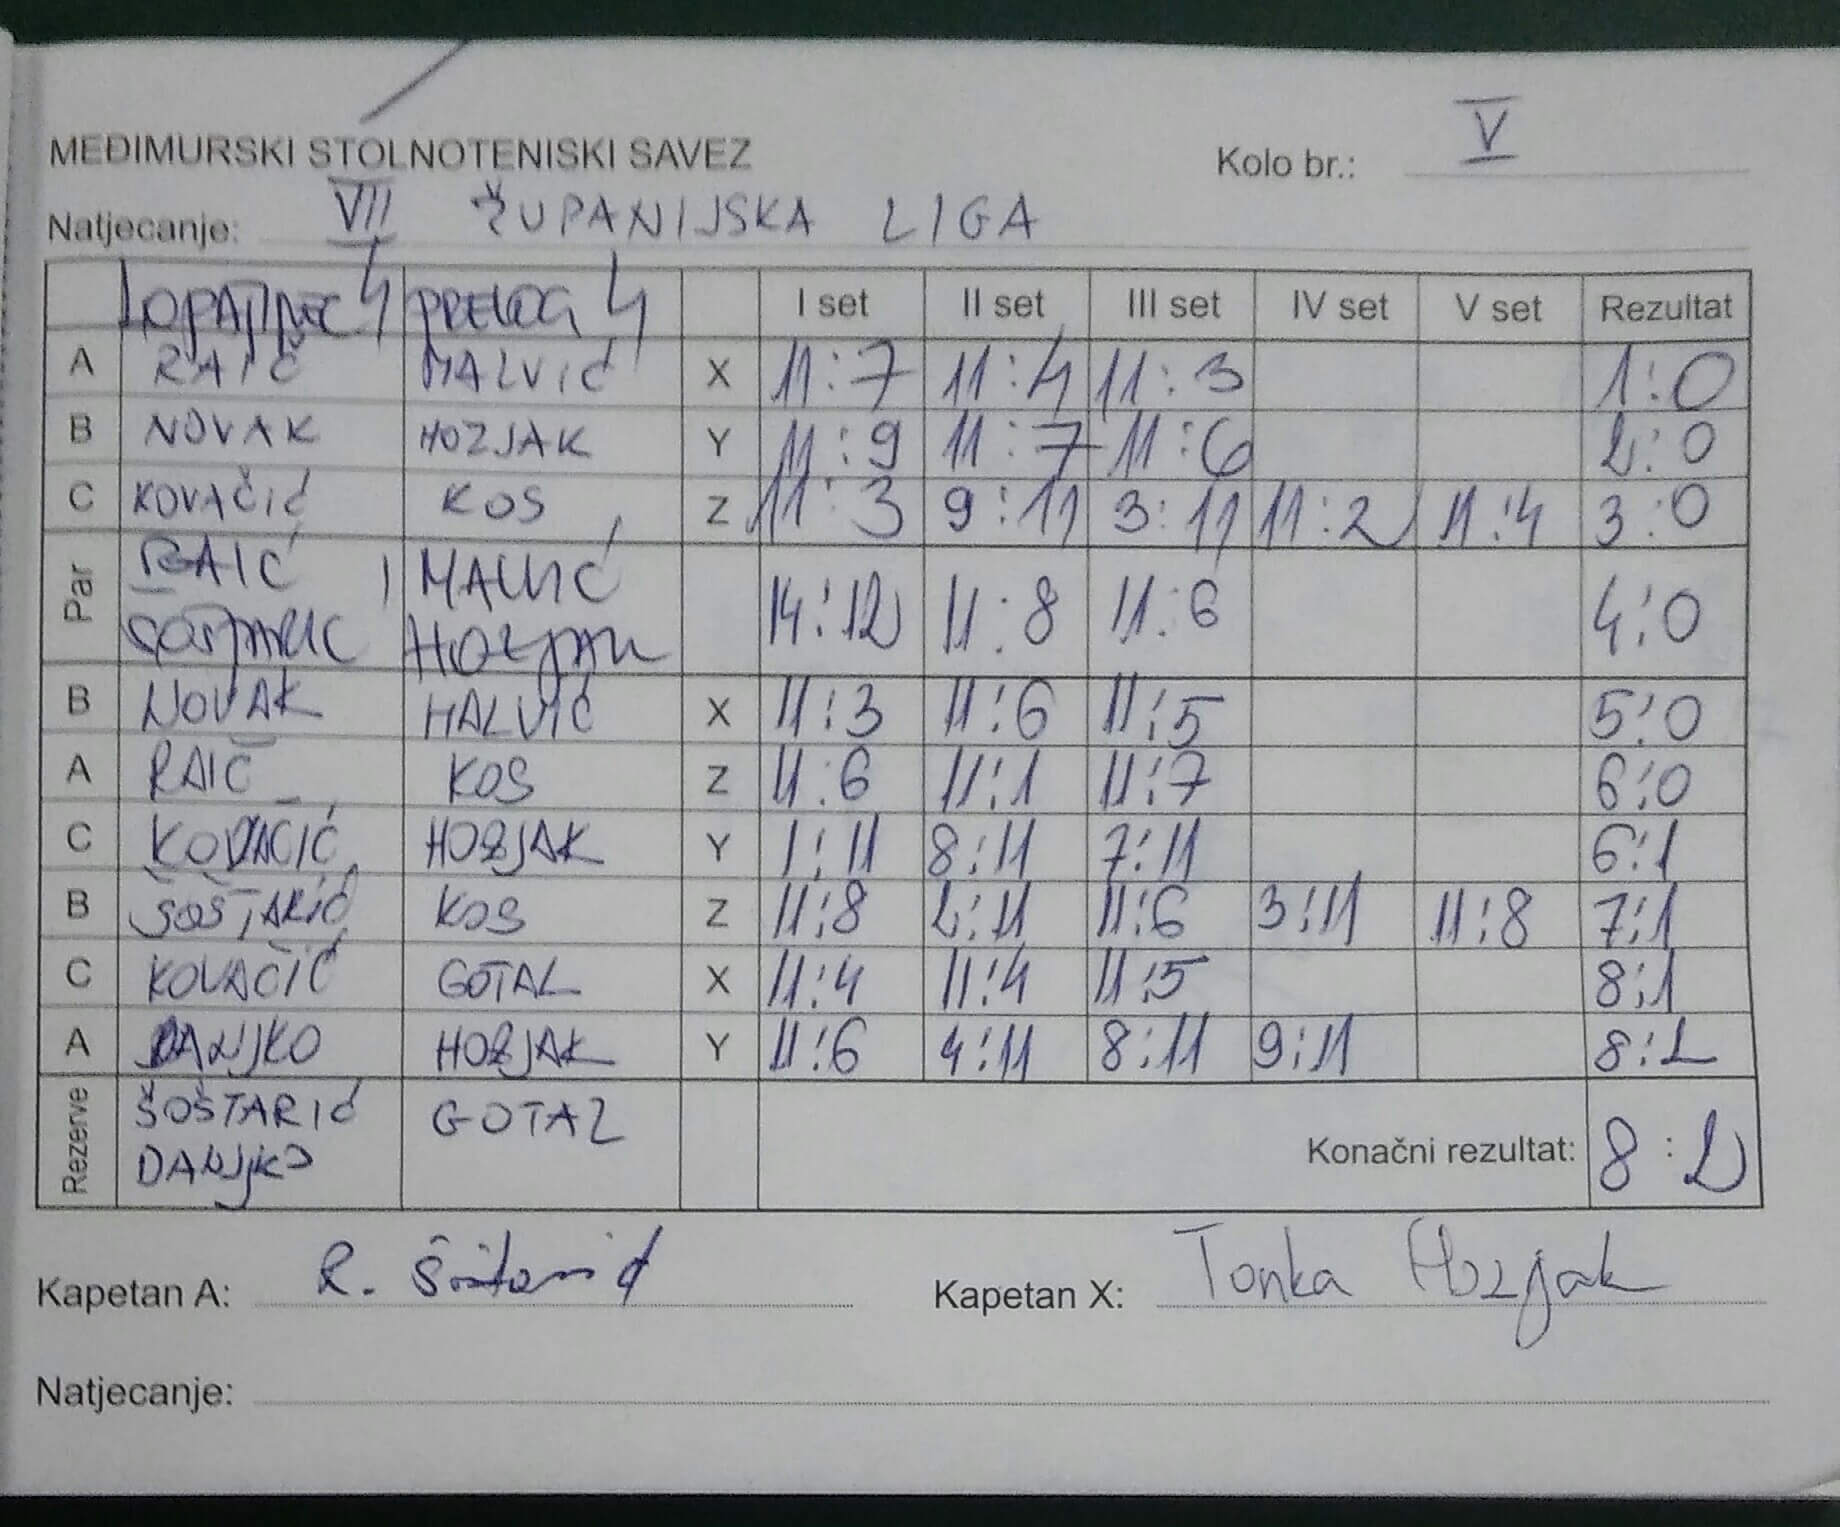 MEĐIMURSKI STOLNOTENISKI SAVEZ Kolo br.: V
Natjecanje: VII ŽUPANIJSKA LIGA
LOPATINEC 4 PRELOG 4 I set II set III set IV set V set Rezultat
A RAIČ MALVIĆ X 11:7 11:4 11:3 1:0
B NOVAK HOZJAK Y 11:9 11:7 11:6 2:0
C KOVAČIĆ KOS Z 11:3 9:11 3:11 11:2 11:4 3:0
Par RAIČ MALVIĆ 14:12 11:8 11:6 4:0
ŠOŠTARIĆ HOZJAK
B NOVAK MALVIĆ X 11:3 11:6 11:5 5:0
A RAIČ KOS Z 11:6 11:1 11:7 6:0
C KOVAČIĆ HOZJAK Y 1:11 8:11 7:11 6:1
B ŠOŠTARIĆ KOS Z 11:8 2:11 11:6 3:11 11:8 7:1
C KOVAČIĆ GOTAL X 11:4 11:4 11:5 8:1
A DANJKO HOZJAK Y 11:6 4:11 8:11 9:11 8:2
Rezerve ŠOŠTARIĆ GOTAL
DANJKO
Konačni rezultat: 8:2
Kapetan A: R. Šoštarić Kapetan X: Tonka Hozjak
Natjecanje: